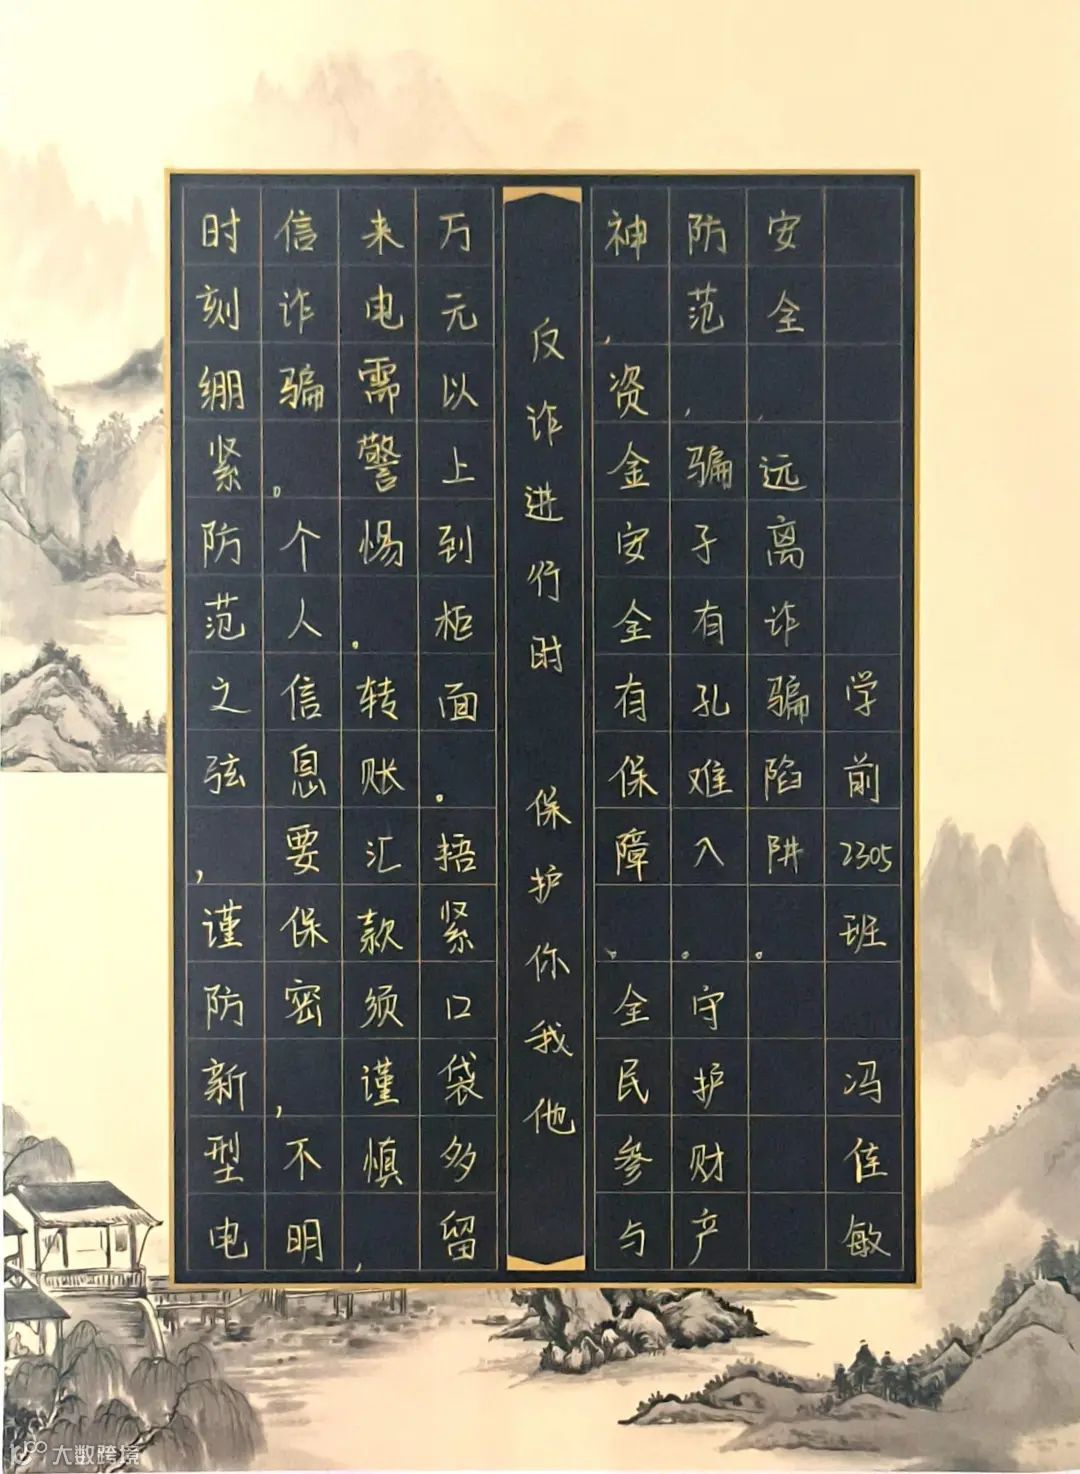 时刻绷紧防范之弦，谨防新型电
信诈骗。个人信息要保密，不明
来电需警惕。转账汇款须谨慎，
万元以上到柜面。捂紧口袋多留
反诈进行时 保护你我他
神，资金安全有保障。全民参与
防范，骗子有孔难入。守护财产
安全，远离诈骗陷阱。
学前2305班 冯佳敏
大数跨境